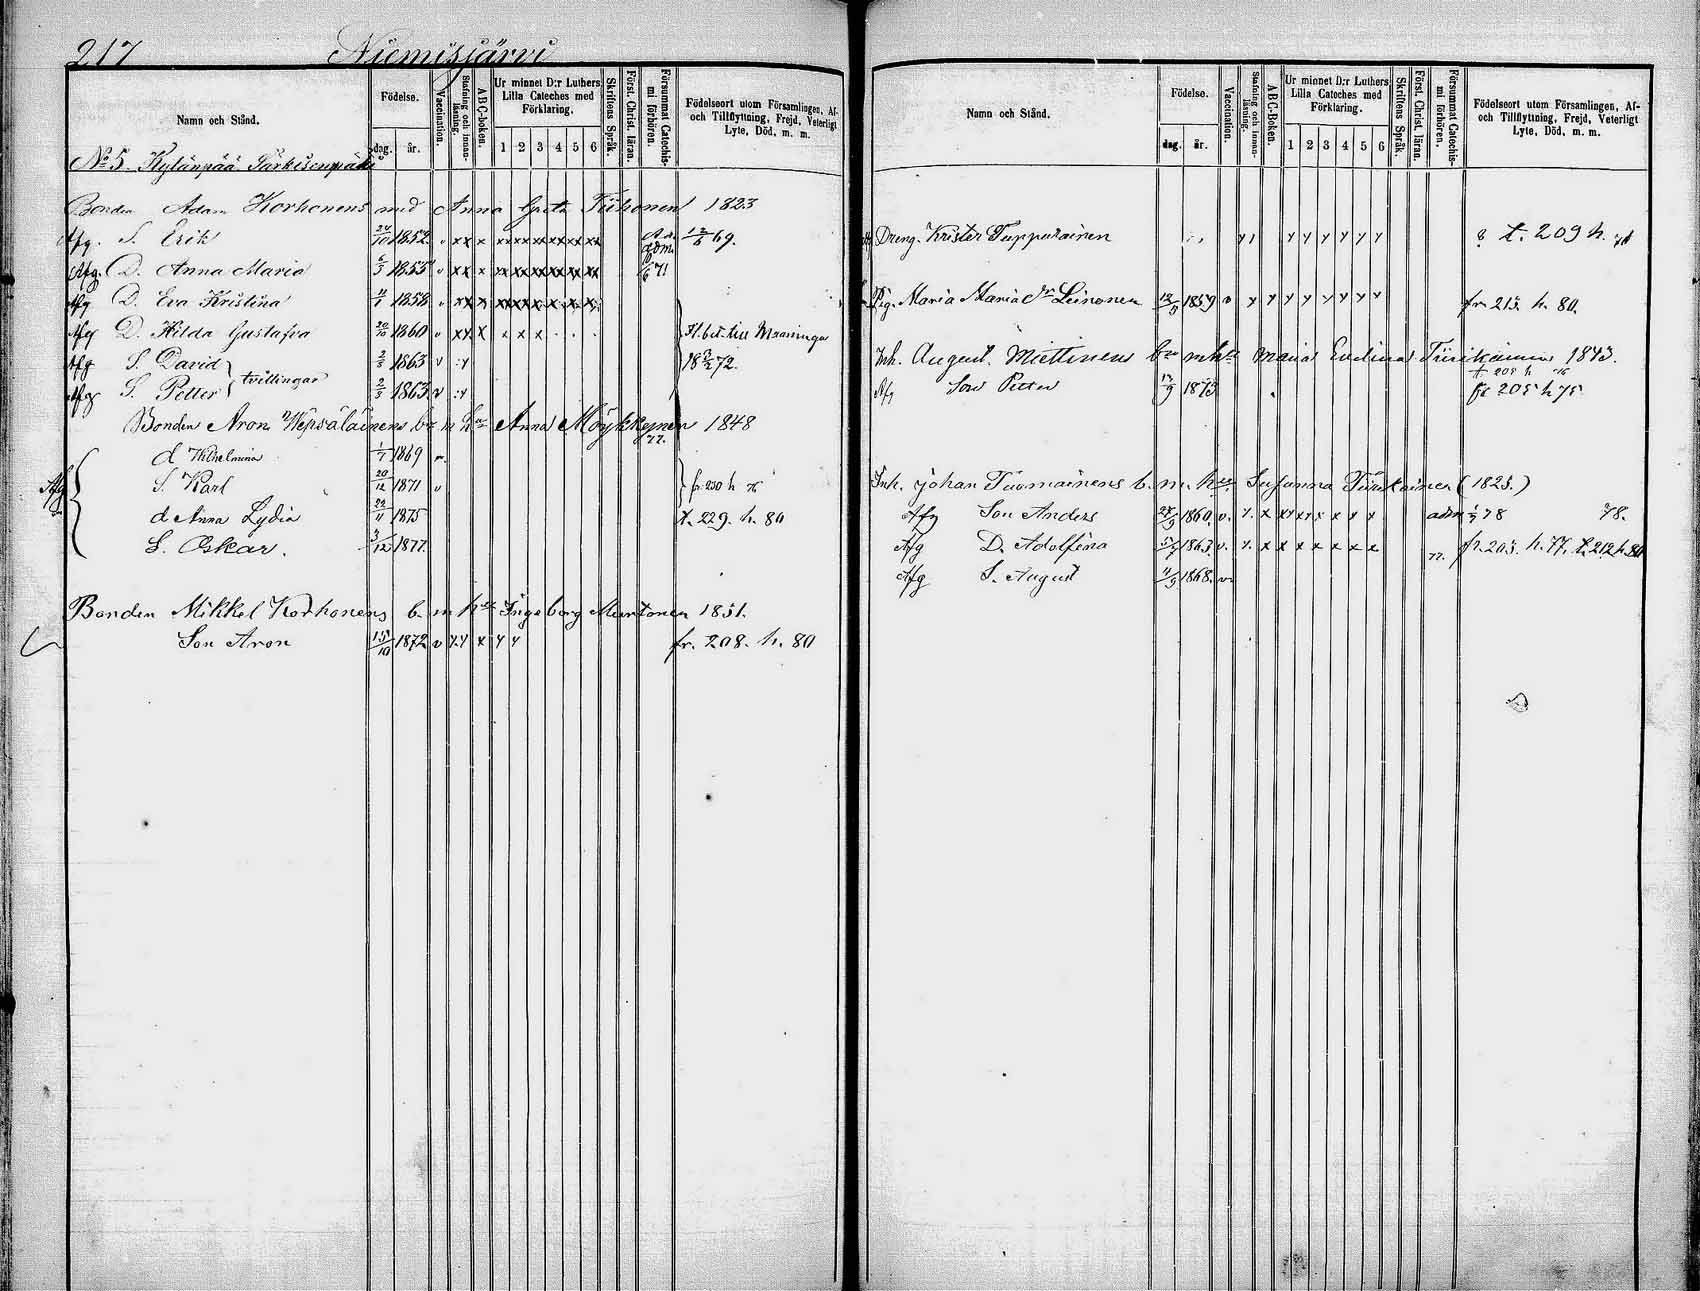 217 Niemisjärvi
Namn och Stånd.
Födelse.
dag. år.
Vaccination.
Stafning och innanläsning.
ABC-boken.
Ur minnet D:r Luthers Lilla Cateches med Förklaring.
1 2 3 4 5 6
Skriftens Språk.
Först. Christ. läran.
Försummat Catechismi förhören.
Födelseort utom Församlingen, Af- och Tillflyttning, Frejd, Veterligt Lyte, Död, m. m.
No 5. Kylänpää Särkisenmäki
Bonden Adam Korhonens med Anna Greta Tiihonen 1823
Afg. S. Erik 24/10 1852 v xx x xxxxxxxxxxx 69.
Afg. D. Anna Maria 6/3 1855 v xx x xxxxxxxxxxx 6 71
Afg D. Eva Kristina 1858 v xxx xxxxxxxxx
Afg D. Hilda Gustafva 20/10 1860 v xx x x x x . . . Fl. bet. till Maaninga
Afg S. David 2/3 1863 v :y 18 72.
tvillingar
Afg S. Petter 2/3 1863 v :y
Bonden Aron Wepsäläinens b. m h. Anna Möykkynen 1848
77.
d Wilhelmina 1/7 1869 v.
Afg S. Karl 20/12 1871 v fr. 230 h 76
d Anna Lydia 22/11 1875 t. 229. h. 80
S. Oskar. 3/12 1877.
Bonden Mikkel Korhonens b. m h. Ingeborg Muntonen 1851.
Son Aron 15/10 1872 v y.y x y y fr. 208. h. 80
Namn och Stånd.
Födelse.
dag. år.
Vaccination.
Stafning och innanläsning.
ABC-Boken.
Ur minnet D:r Luthers Lilla Cateches med Förklaring.
1 2 3 4 5 6
Skriftens Språk.
Först. Christ. läran.
Försummat Catechismi förhören.
Födelseort utom Församlingen, Af- och Tillflyttning, Frejd, Veterligt Lyte, Död, m. m.
Dreng. Krister Tuppurainen y y y y y y t. 209 h.
Pig. Maria Maria Leinonen 12/9 1859 v y y y y y y y y fr. 215. h. 80.
Inh. August Miettinens Maria Evelina Tiirikainen 1843.
t 205 h 76
Afg Son Petter 17/9 1873 fr 205 h 75.
Inh. Johan Tuomainens b. m. h. Susanna Tiirikainen (1825.)
Afg Son Anders 1860. v. y. x xy xy x x x x adm 78 78.
Afg D. Adolfina 1863. v. y. x x x x x x x 77. fr. 205. h. 77. t. 212 h. 80
Afg S. August 11/9 1868. v.